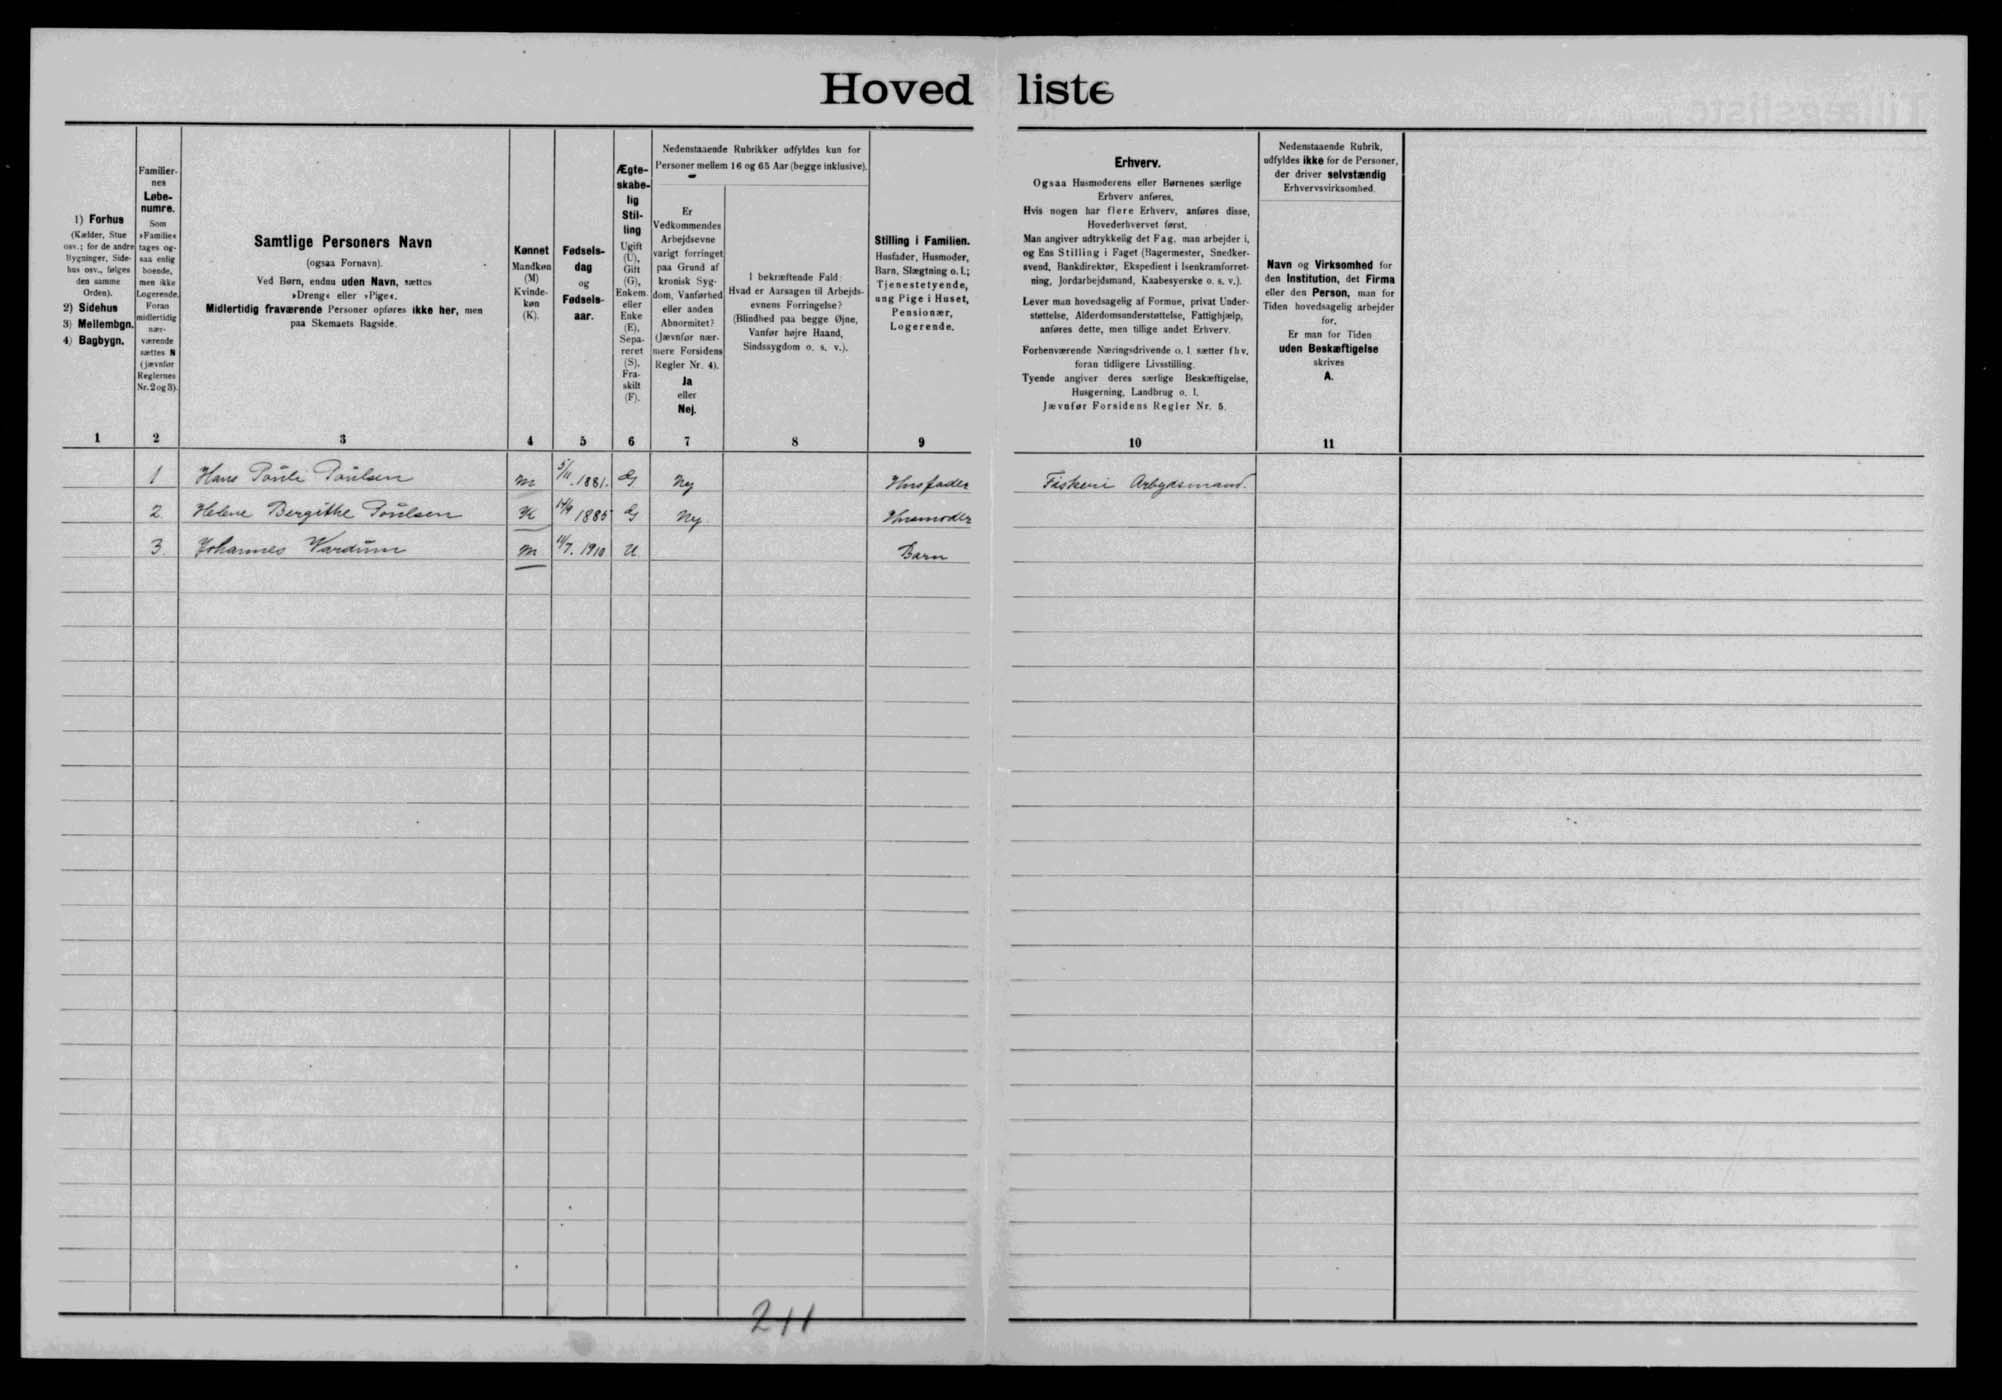 Hovedliste
1) Forhus
(Kælder, Stue
osv.; for de andre
Bygninger, Side-
hus osv., følges
den samme
Orden).
2) Sidehus
3) Mellembgn.
4) Bagbygn.
Familier-
nes
Løbe-
numre.
Som
»Familie«
tages og-
saa enlig
boende,
men ikke
Logerende.
Foran
midlertidig
nær-
værende
sættes N
(jævnfør
Reglernes
Nr. 2 og 3).
Samtlige Personers Navn
(ogsaa Fornavn).
Ved Børn, endnu uden Navn, sættes
»Dreng« eller »Pige«.
Midlertidig fraværende Personer opføres ikke her, men
paa Skemaets Bagside.
Kønnet
Mandkøn
(M)
Kvinde-
køn
(K).
Fødsels-
dag
og
Fødsels-
aar.
Ægte-
skabe-
lig
Stil-
ling
Ugift
(U),
Gift
(G),
Enkem.
eller
Enke
(E),
Sepa-
reret
(S),
Fra-
skilt
(F).
Nedenstaaende Rubrikker udfyldes kun for
Personer mellem 16 og 65 Aar (begge inklusive).
Er
Vedkommendes
Arbejdsevne
varigt forringet
paa Grund af
kronisk Syg-
dom, Vanførhed
eller anden
Abnormitet?
(Jævnfør nær-
mere Forsidens
Regler Nr. 4).
Ja
eller
Nej.
I bekræftende Fald:
Hvad er Aarsagen til Arbejds-
evnens Forringelse?
(Blindhed paa begge Øjne,
Vanfør højre Haand,
Sindssygdom o. s. v.).
Stilling i Familien.
Husfader, Husmoder,
Barn, Slægtning o. l.;
Tjenestetyende,
ung Pige i Huset,
Pensionær,
Logerende.
Erhverv.
Ogsaa Husmoderens eller Børnenes særlige
Erhverv anføres.
Hvis nogen har flere Erhverv, anføres disse,
Hovederhvervet først.
Man angiver udtrykkelig det Fag, man arbejder i,
og Ens Stilling i Faget (Bagermester, Snedker-
svend, Bankdirektør, Ekspedient i Isenkramforret-
ning, Jordarbejdsmand, Kaabesyerske o. s. v.).
Lever man hovedsagelig af Formue, privat Under-
støttelse, Alderdomsunderstøttelse, Fattighjælp,
anføres dette, men tillige andet Erhverv.
Forhenværende Næringsdrivende o. l. sætter fhv.
foran tidligere Livsstilling.
Tyende angiver deres særlige Beskæftigelse,
Husgerning, Landbrug o. l.
Jævnfør Forsidens Regler Nr. 5.
Nedenstaaende Rubrik,
udfyldes ikke for de Personer,
der driver selvstændig
Erhvervsvirksomhed.
Navn og Virksomhed for
den Institution, det Firma
eller den Person, man for
Tiden hovedsagelig arbejder
for.
Er man for Tiden
uden Beskæftigelse
skrives
A.
1 2 3 4 5 6 7 8 9 10 11
1 Hans Pauli Poulsen M 5/11 1881. G Nej Husfader Fiskeri Arbejdsmand.
2. Helene Bergithe Poulsen K 14/9 1885 G Nej Husmoder
3. Johannes Vardum M 11/7. 1910 U. Barn
211